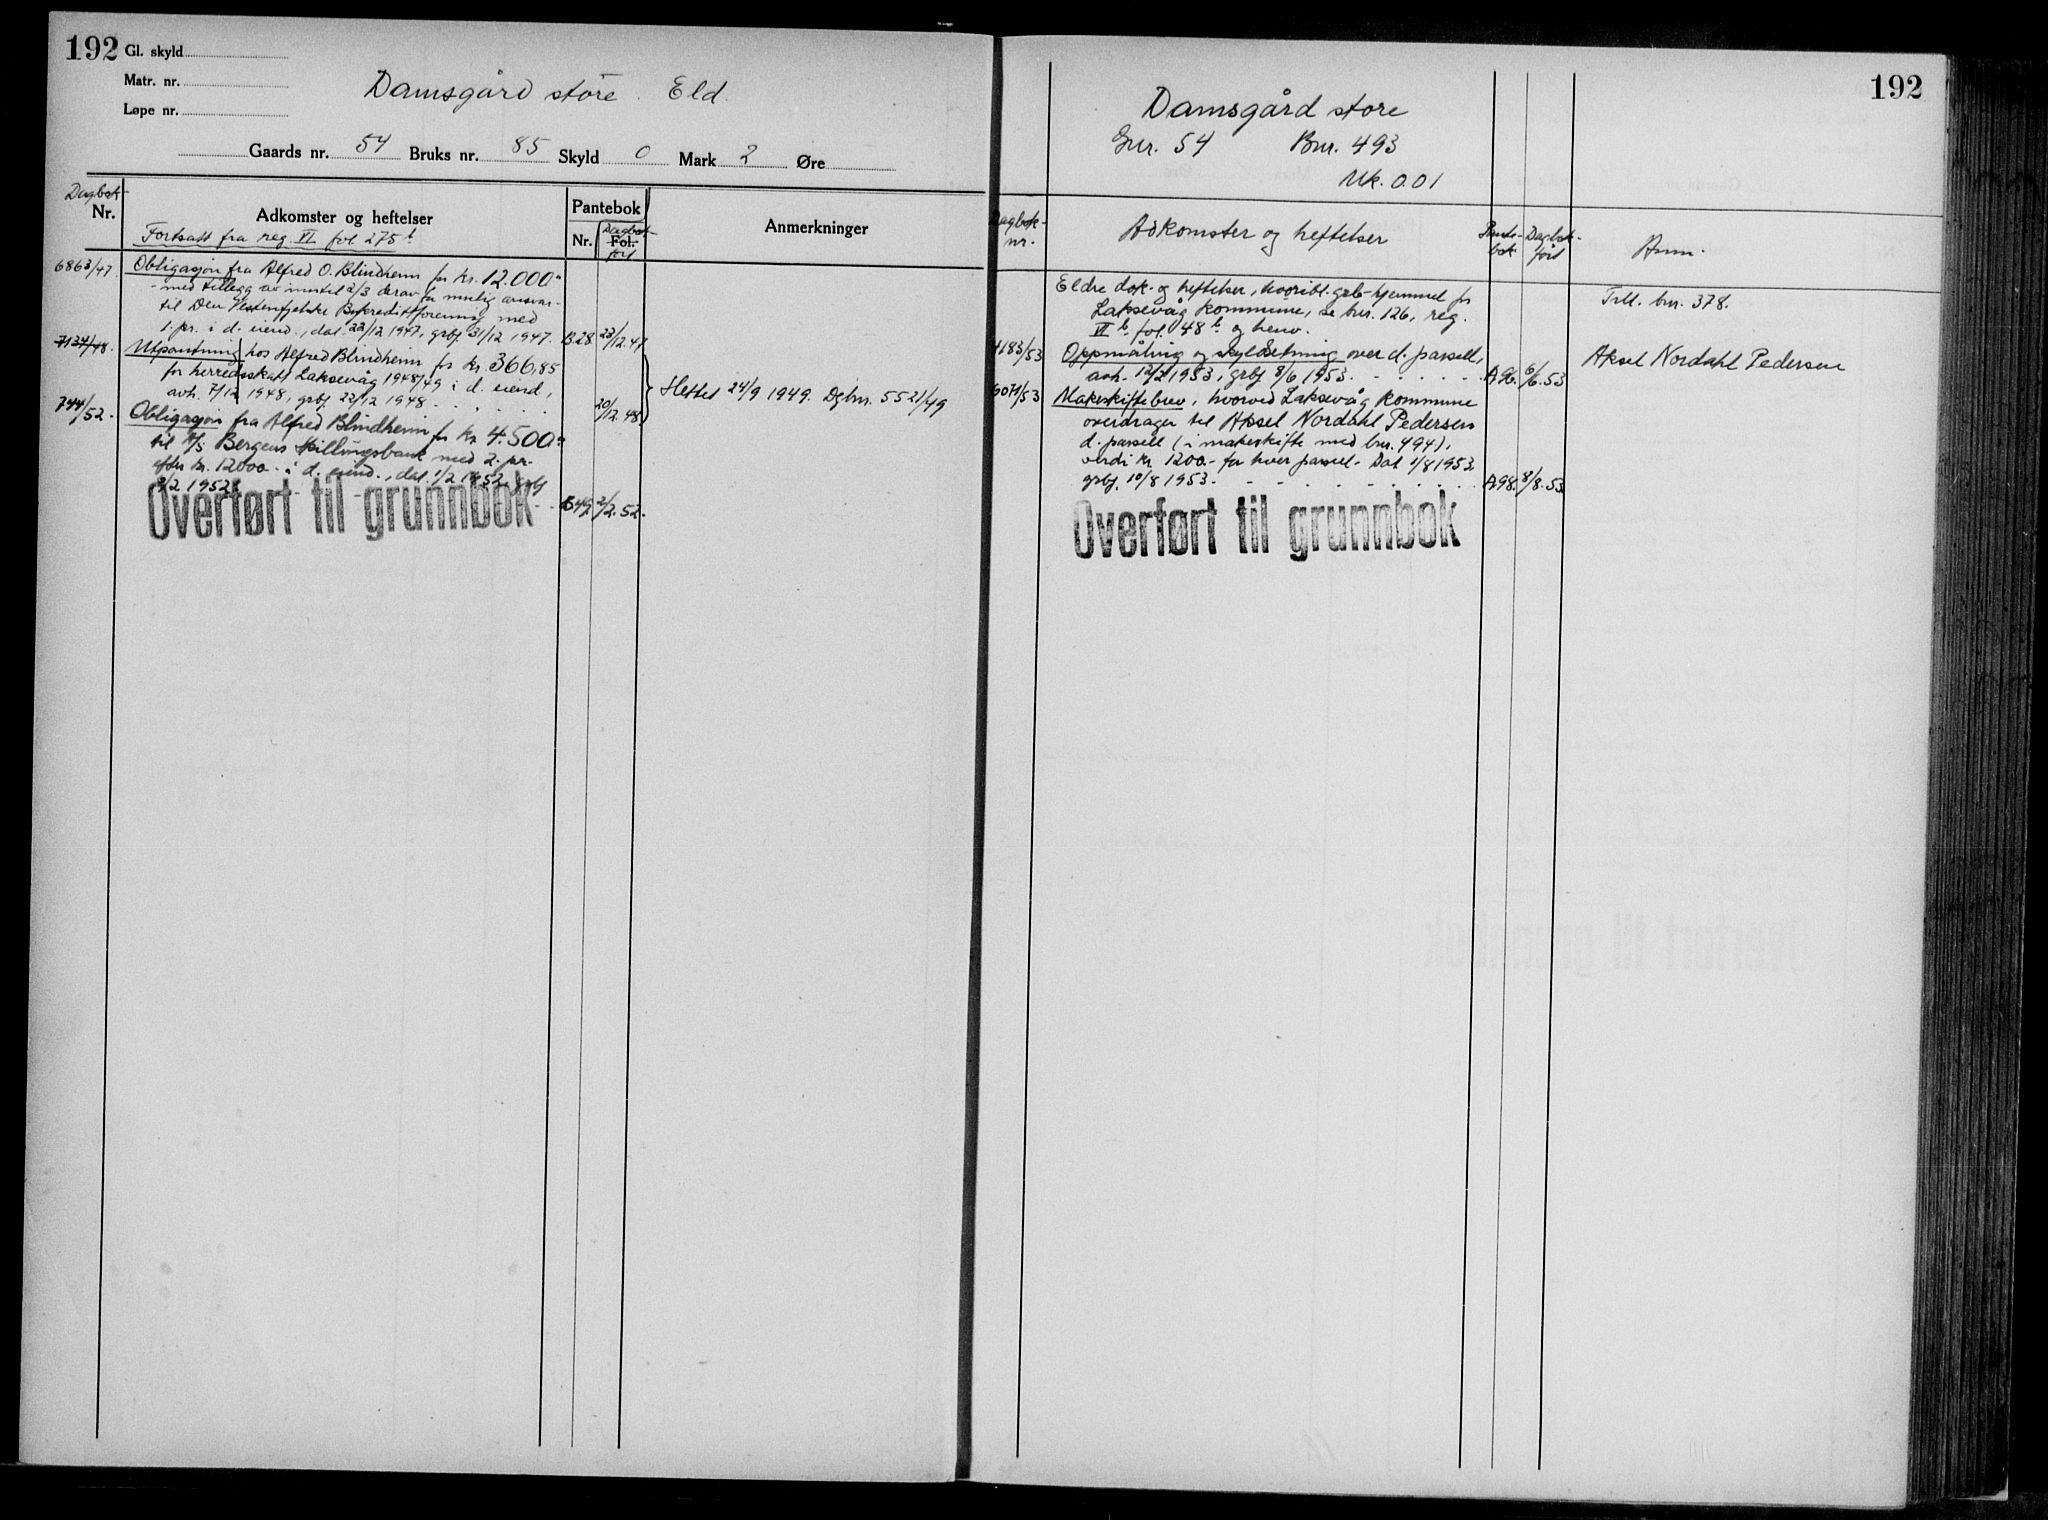 192
Gl. skyld
Matr. nr.
Løpe nr.
Damsgård store. Eld.
Gaards nr. 54 Bruks nr. 85 Skyld 0 Mark 2 Øre
Dagbok-
Nr.
Adkomster og heftelser
Fortsatt fra reg. VI fol 275b
Pantebok
Nr.
Fol.
Dagbok-
ført
Anmerkninger
6863/47
Obligasjon fra Alfred O. Blindheim for kr. 12.000.-
- med tillegg av inntil 2/3 derav for mulig ansvar -
til Den Vestenfjelske Bykredittforening med
1. pr. i d. eiend., dat. 22/12 1947, grbf. 31/12 1947.
B28
23/12.47
7134/48.
Utpantning hos Alfred Blindheim for kr. 366,85
for herredsskatt Laksevåg 1948/49 i d. eiend,
avh. 7/12 1948, grbf. 22/12 1948
20/12.48
Hettes 24/9 1949. Dgbnr. 5521/49
744/52.
Obligasjon fra Alfred Blindheim for kr. 4.500.-
til A/S Bergens Skillingsbank med 2. pr.
efter kr. 12000.- i d. eiend., dat. 1/2 1952, grbf
8/2 1952.
B49
2/2.52.
Overført til grunnbok
192
Damsgård store
Gnr. 54 Bnr. 493
Mk. 0.01
Dagbok-
nr.
Adkomster og heftelser
Pante-
bok
Dagbok-
ført
Anm.
Eldre dok. og heftelser, hvoribl. grb-hjemmel for
Laksevåg kommune, se bnr. 126, reg.
VI b fol. 48 b og henv.
Till. bnr. 378.
4183/53
Oppmåling og skyldsetning over d. parsell,
avh. 12/2 1953, grbf 8/6 1953.
A96.
6/6.53
Aksel Nordahl Pedersen
6071/53
Makeskiftebrev, hvorved Laksevåg kommune
overdrager til Aksel Nordahl Pedersen
d. parsell (i makeskifte med bnr. 494),
verdi kr 1200.- for hver parsel. Dat 1/8 1953
grbf. 10/8 1953.
A98.
8/8.53
Overført til grunnbok